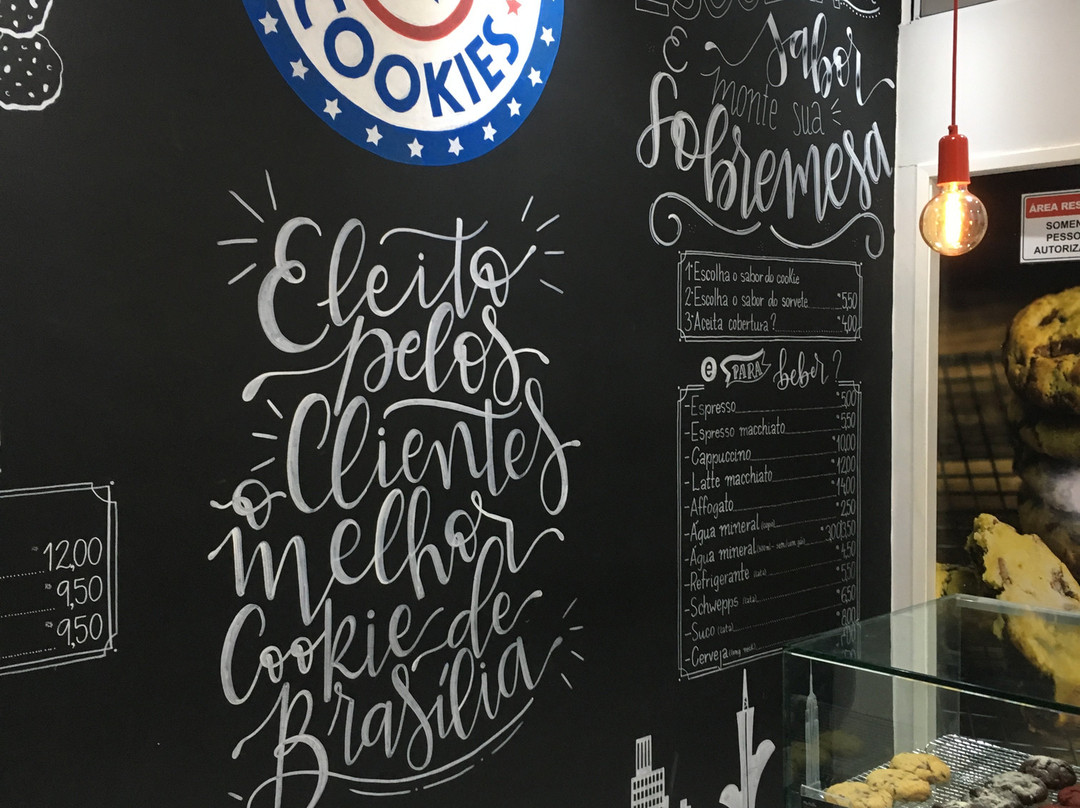 COOKIES
Eleito
pelos
Clientes
o
melhor
Cookie de
Brasília
12,00
9,50
9,50
e
sabor
monte sua
sobremesa
1º Escolha o sabor do cookie
2º Escolha o sabor do sorvete 5,50
3º Aceita cobertura? 4,00
e PARA beber?
-Espresso 5,00
-Espresso macchiato 5,50
-Cappuccino 10,00
-Latte macchiato 12,00
-Affogato 14,00
-Água mineral 2,50
-Água mineral 3,00|3,50
-Refrigerante (lata) 4,50
-Schwepps (lata) 5,50
-Suco (lata) 6,50
-Cerveja (long neck) 8,00
ÁREA RES
SOMEN
PESSO
AUTORIZA